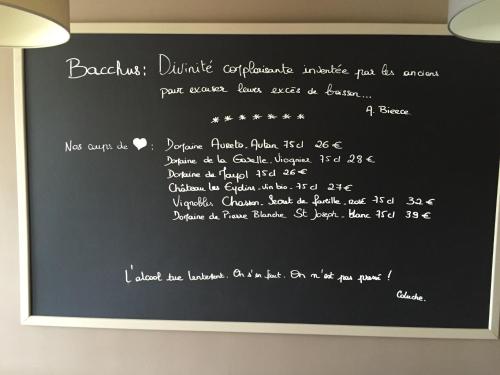 Bacchus : Divinité complaisante inventée par les anciens
pour excuser leurs excès de boisson...
A. Bierce
* * * * * * *
Nos coups de ♥ : Domaine Aureto. Autan 75 cl 26 €
Domaine de la Garelle. Viognier 75 cl 28 €
Domaine de Mayol 75 cl 26 €
Château les Eydins. vin bio. 75 cl 27 €
Vignobles Chasson. Secret de famille. rosé 75 cl 32 €
Domaine de Pierre Blanche St Joseph. blanc 75 cl 39 €
L'alcool tue lentement. On s'en fout. On n'est pas pressé !
Coluche.